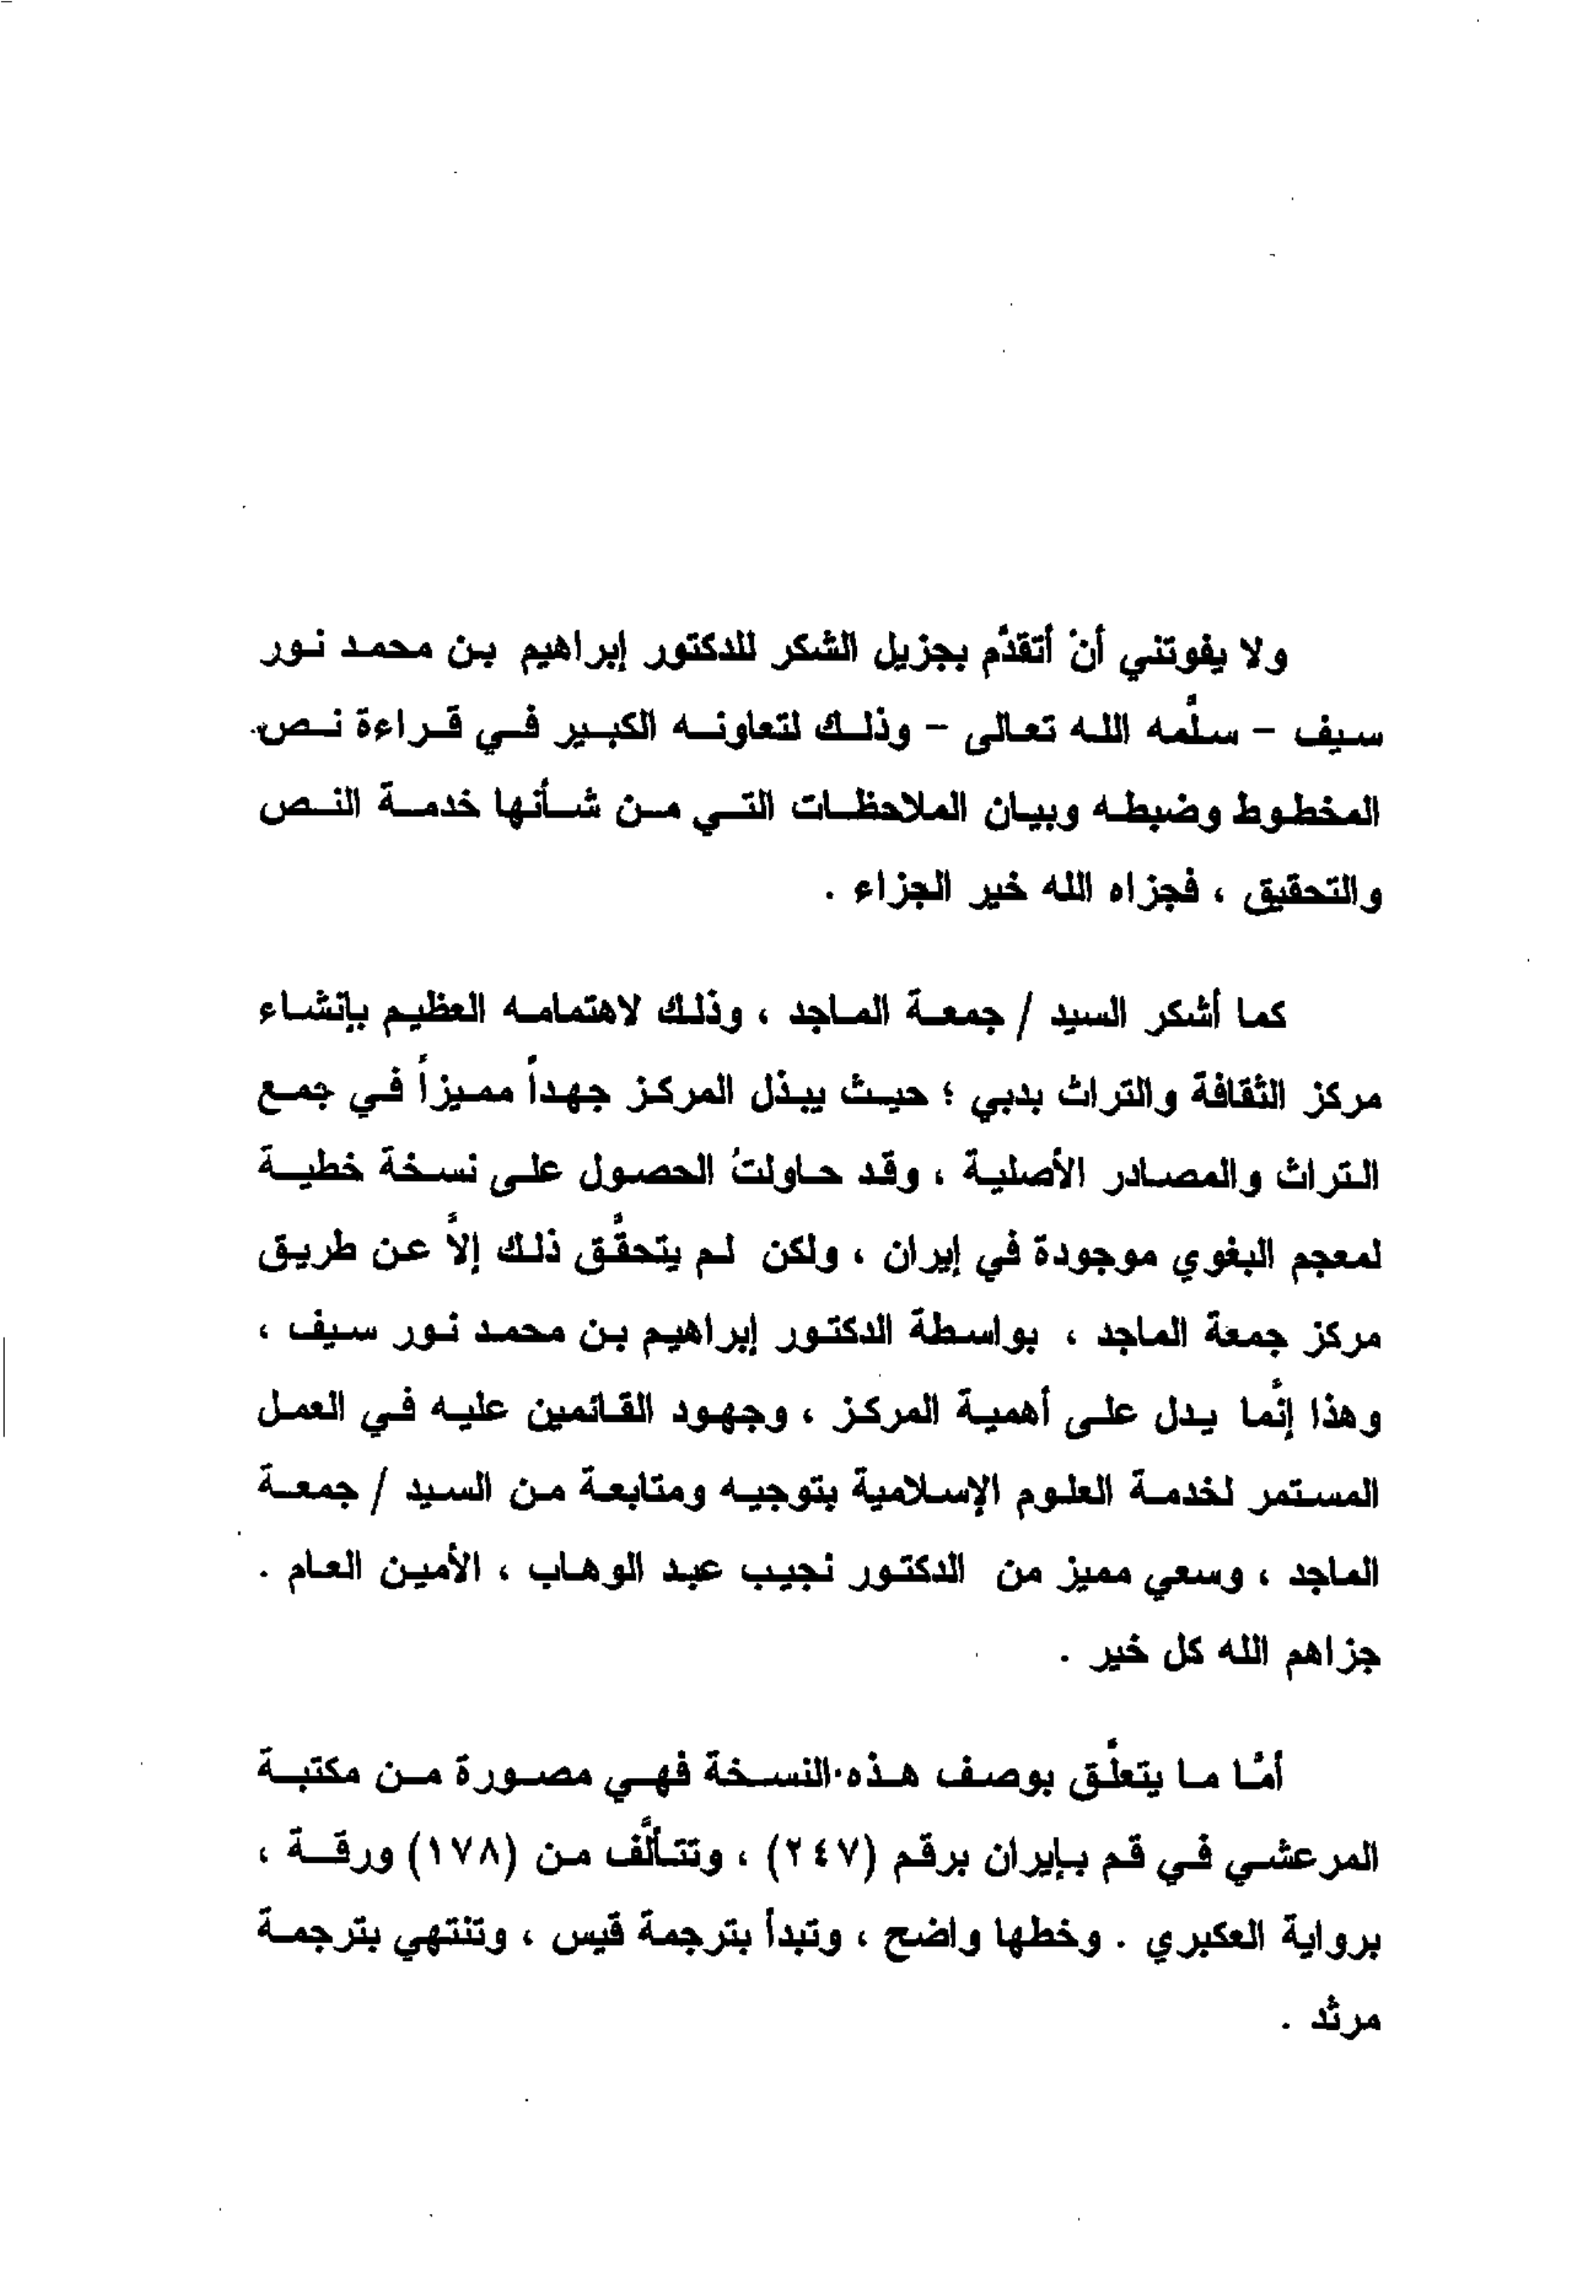 ولا يفوتني أنْ أتقدَّم بجزيل الشكر للدكتور إبراهيم بن محمد نور
سيف – سلَّمه الله تعالى – وذلك لتعاونه الكبير في قراءة نص
المخطوط وضبطه وبيان الملاحظات التي من شأنها خدمة النص
والتحقيق ، فجزاه الله خير الجزاء .
كما أشكر السيد / جمعة الماجد ، وذلك لاهتمامه العظيم بإنشاء
مركز الثقافة والتراث بدبي ؛ حيث يبذل المركز جهداً مميزاً في جمع
التراث والمصادر الأصلية ، وقد حاولتُ الحصول على نسخة خطية
لمعجم البغوي موجودة في إيران ، ولكن لم يتحقَّق ذلك إلاَّ عن طريق
مركز جمعة الماجد ، بواسطة الدكتور إبراهيم بن محمد نور سيف ،
وهذا إنَّما يدل على أهمية المركز ، وجهود القائمين عليه في العمل
المستمر لخدمة العلوم الإسلامية بتوجيه ومتابعة من السيد / جمعة
الماجد ، وسعي مميز من الدكتور نجيب عبد الوهاب ، الأمين العام .
جزاهم الله كل خير .
أمَّا ما يتعلَّق بوصف هذه النسخة فهي مصورة من مكتبة
المرعشي في قم بإيران برقم (٢٤٧) ، وتتألَّف من (١٧٨) ورقة ،
برواية العكبري . وخطها واضح ، وتبدأ بترجمة قيس ، وتنتهي بترجمة
مرثد .